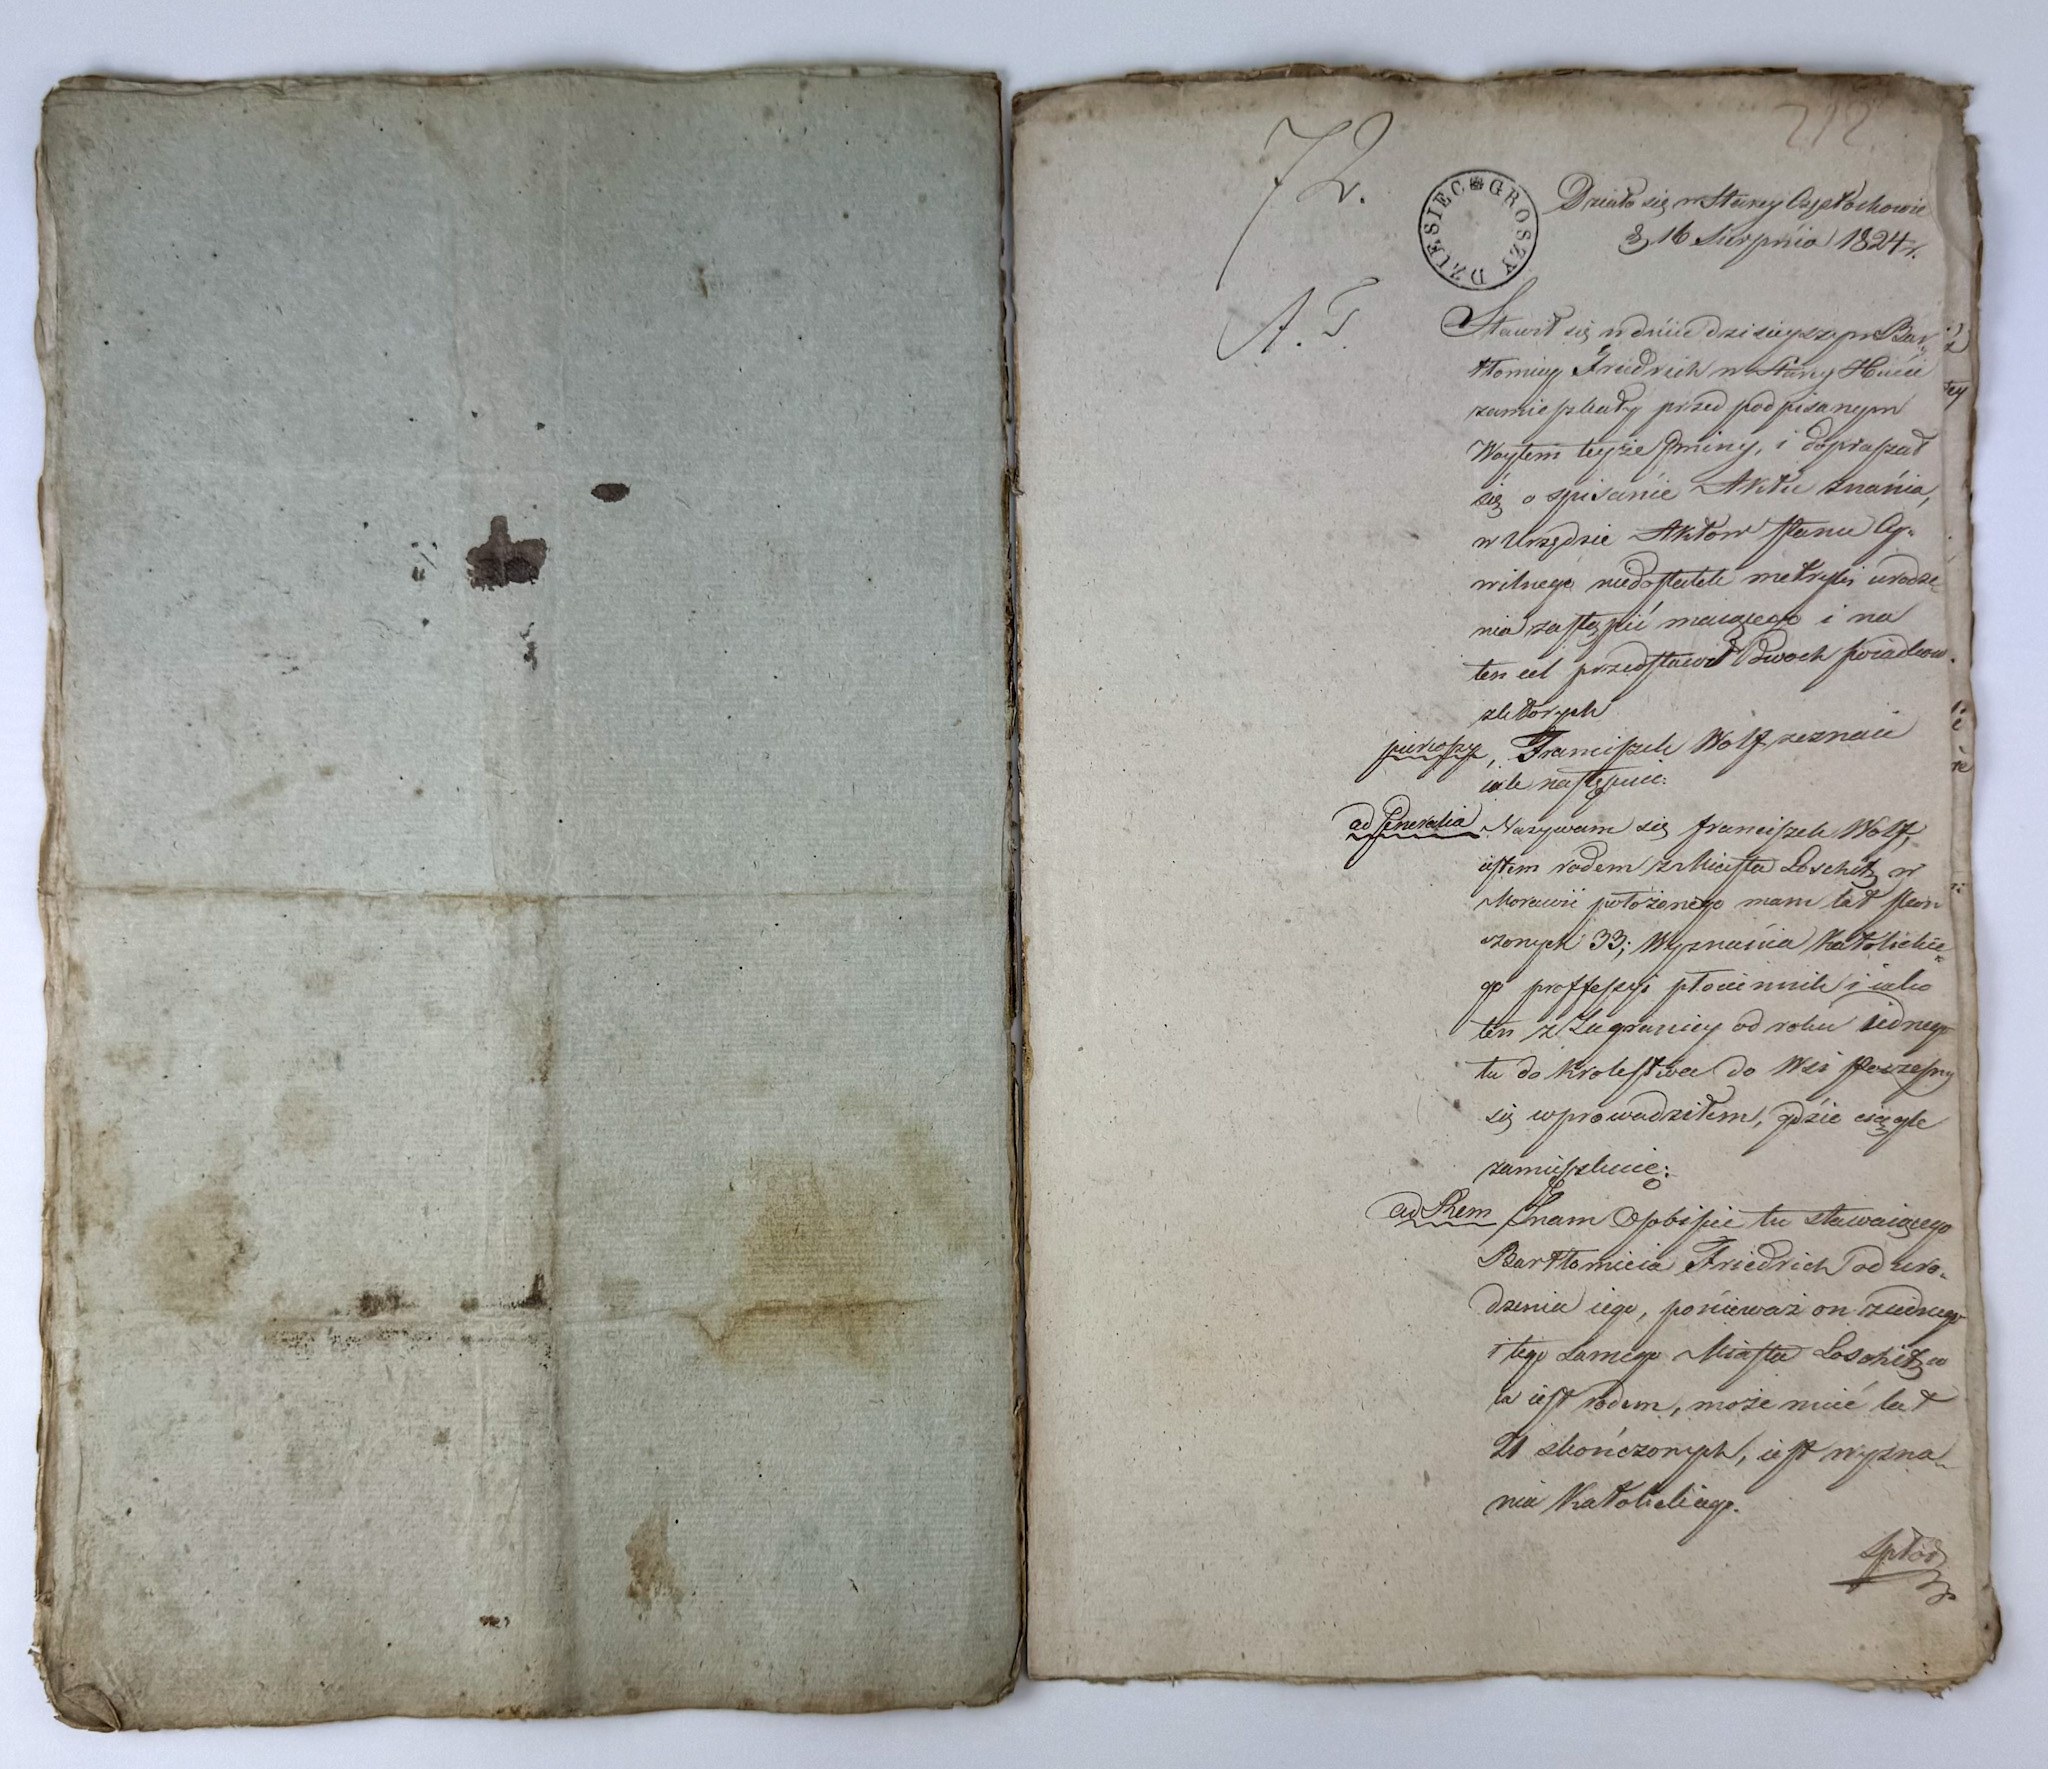 212
72.
DZIESIEC GROSZY
Działo się w Starey Częstochowie
d 16 Sierpnia 1824 r.
A. T.
Stawił się w dniu dzisieyszym Bar-
tłomiey Friedrich w Stary Hucie
zamieszkały przed podpisanym
Woytem teyże Gminy, i dopraszał
się o spisanie Aktu znania,
w Urzędzie Aktow stanu Cy-
wilnego niedostatek metryki urodze-
nia zastąpić maiącego i na
ten cel przedstawił Dwoch swiadkow.
z ktorych
pierwszy, Franciszek Wolf zeznaie
iak następuie:
ad Generalia Nazywam się Franciszek Wolf,
iestem rodem z Miasta Loschitz w
Morawii położonego mam lat skon
czonych 33; Wyznania Katolickie-
go proffessyi płociennik i iako
ten z Zagranicy od roku iednego
tu do Krolestwa do Wsi
się wprowadziłem, gdzie ciągle
zamieszkuię:
ad Rem Znam Osobiscie tu stawaiącego
Bartłomieia Friedrich od uro-
dzenia iego, ponieważ on z iednego
i tego samego Miasta Loschitz co
ia iest rodem, może mieć lat
21 skończonych, iest wyzna-
nia Katolickiego.